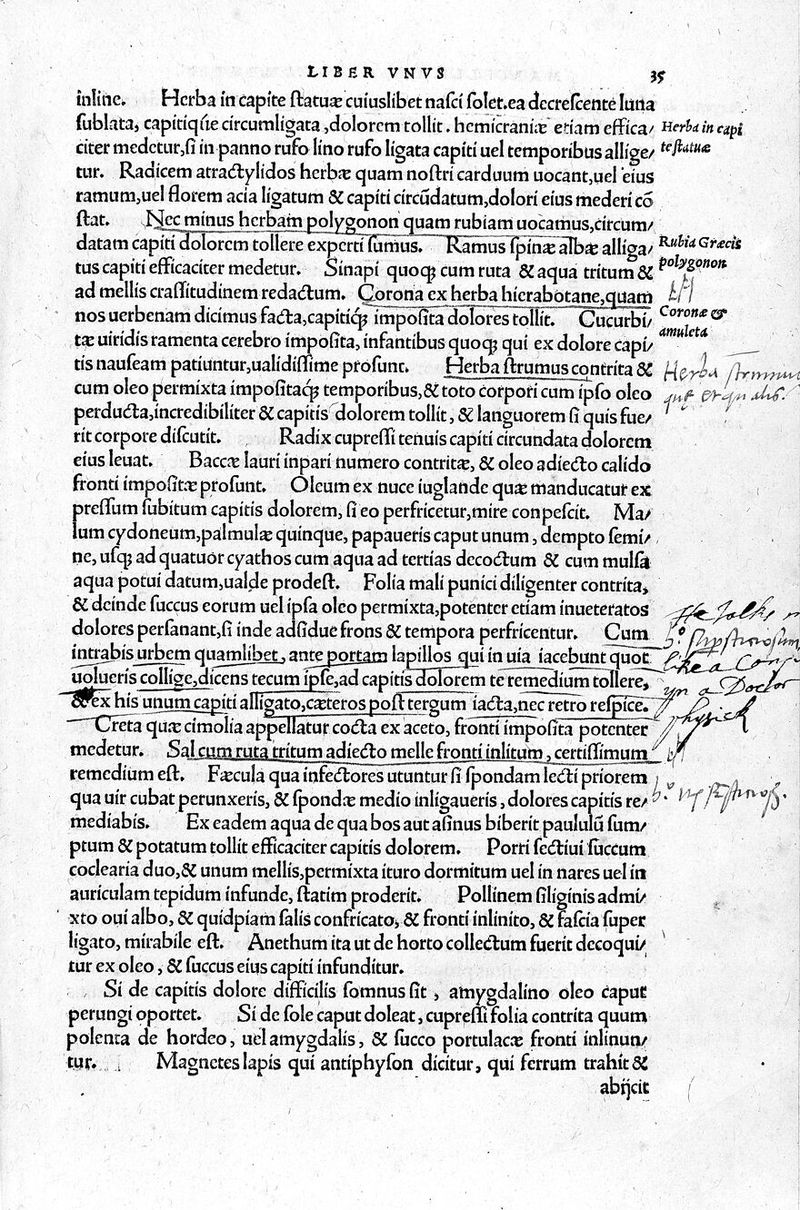 LIBER VNVS 35
inline. Herba in capite ſtatuæ cuiuslibet naſci ſolet. ea decreſcente luna
ſublata, capitiq́ue circumligata, dolorem tollit. hemicraniæ etiam effica/
Herba in capi
citer medetur, ſi in panno rufo lino rufo ligata capiti uel temporibus allige/
te ſtatuæ
tur. Radicem atractylidos herbæ quam noſtri carduum uocant, uel eius
ramum, uel florem acia ligatum & capiti circūdatum, dolori eius mederi cō
ſtat. Nec minus herbam polygonon quam rubiam uocamus, circum/
datam capiti dolorem tollere experti ſumus. Ramus ſpinæ albæ alliga/
Rubia Græcis
tus capiti efficaciter medetur. Sinapi quoqꝫ cum ruta & aqua tritum &
polygonon
ad mellis craſſitudinem redactum. Corona ex herba hierabotane, quam
nos uerbenam dicimus facta, capitiq́ꝫ impoſita dolores tollit. Cucurbi/
Coronæ &
tæ uiridis ramenta cerebro impoſita, infantibus quoqꝫ qui ex dolore capi/
amuleta
tis nauſeam patiuntur, ualidiſſime proſunt. Herba ſtrumus contrita &
Herba
cum oleo permixta impoſitaq́ꝫ temporibus, & toto corpori cum ipſo oleo
quę et qualis.
perducta, incredibiliter & capitis dolorem tollit, & languorem ſi quis fue/
rit corpore diſcutit. Radix cupreſſi tenuis capiti circundata dolorem
eius leuat. Baccæ lauri inpari numero contritæ, & oleo adiecto calido
fronti impoſitæ proſunt. Oleum ex nuce iuglande quæ manducatur ex
preſſum ſubitum capitis dolorem, ſi eo perfricetur, mire conpeſcit. Ma/
lum cydoneum, palmulæ quinque, papaueris caput unum, dempto ſemi/
ne, uſqꝫ ad quatuor cyathos cum aqua ad tertias decoctum & cum mulſa
aqua potui datum, ualde prodeſt. Folia mali punici diligenter contrita,
& deinde ſuccus eorum uel ipſa oleo permixta, potenter etiam inueteratos
He talks
dolores perſanant, ſi inde adſidue frons & tempora perfricentur. Cum
intrabis urbem quamlibet, ante portam lapillos qui in uia iacebunt quot
like a
uolueris collige, dicens tecum ipſe, ad capitis dolorem te remedium tollere,
a Doctor
& ex his unum capiti alligato, cæteros poſt tergum iacta, nec retro reſpice.
physick
Creta quæ cimolia appellatur cocta ex aceto, fronti impoſita potenter
medetur. Sal cum ruta tritum adiecto melle fronti inlitum, certiſſimum
remedium eſt. Fæcula qua infectores utuntur ſi ſpondam lecti priorem
qua uir cubat perunxeris, & ſpondæ medio inligaueris, dolores capitis re/
mediabis. Ex eadem aqua de qua bos aut aſinus biberit paululū ſum/
ptum & potatum tollit efficaciter capitis dolorem. Porri ſectiui ſuccum
coclearia duo, & unum mellis, permixta ituro dormitum uel in nares uel in
auriculam tepidum infunde, ſtatim proderit. Pollinem ſiliginis admi/
xto oui albo, & quidpiam ſalis confricato, & fronti inlinito, & faſcia ſuper
ligato, mirabile eſt. Anethum ita ut de horto collectum fuerit decoqui/
tur ex oleo, & ſuccus eius capiti infunditur.
Si de capitis dolore difficilis ſomnus ſit, amygdalino oleo caput
perungi oportet. Si de ſole caput doleat, cupreſſi folia contrita quum
polenta de hordeo, uel amygdalis, & ſucco portulacæ fronti inlinun/
tur. Magnetes lapis qui antiphyſon dicitur, qui ferrum trahit &
abijcit